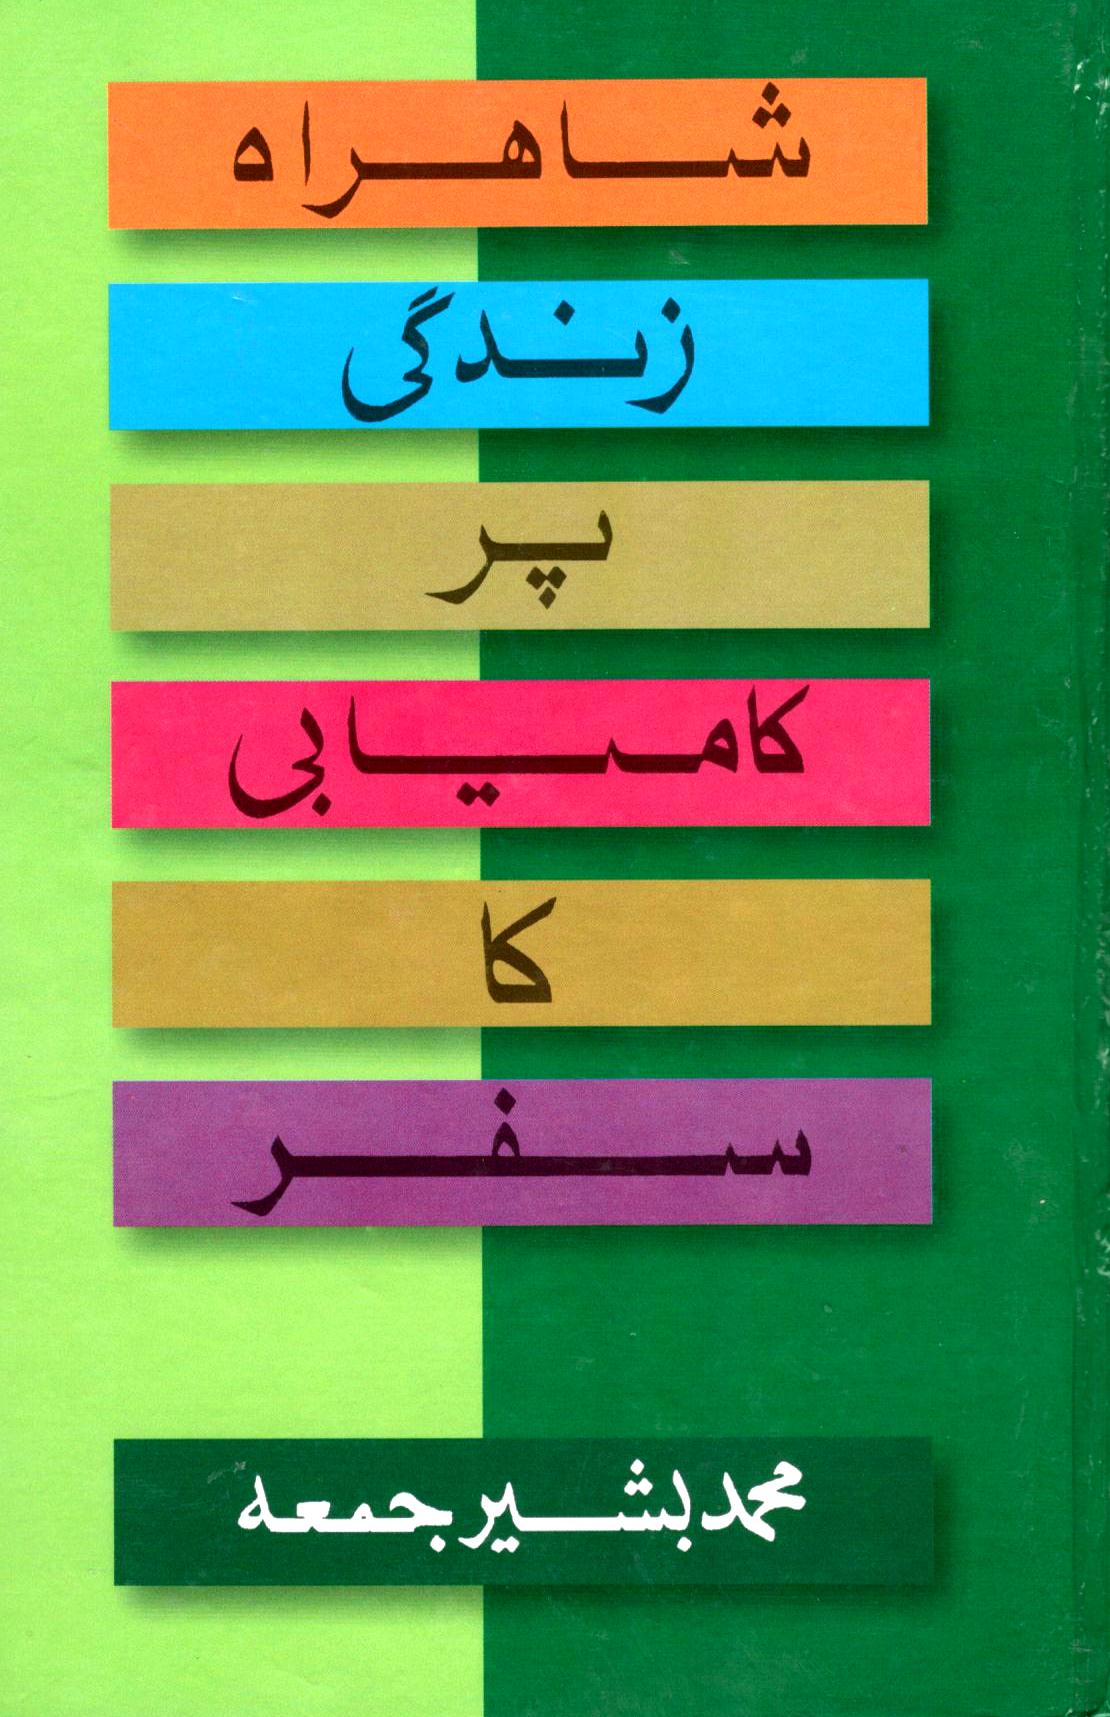 شاہراہ
زندگی
پر
کامیابی
کا
سفر
محمد بشیر جمعہ